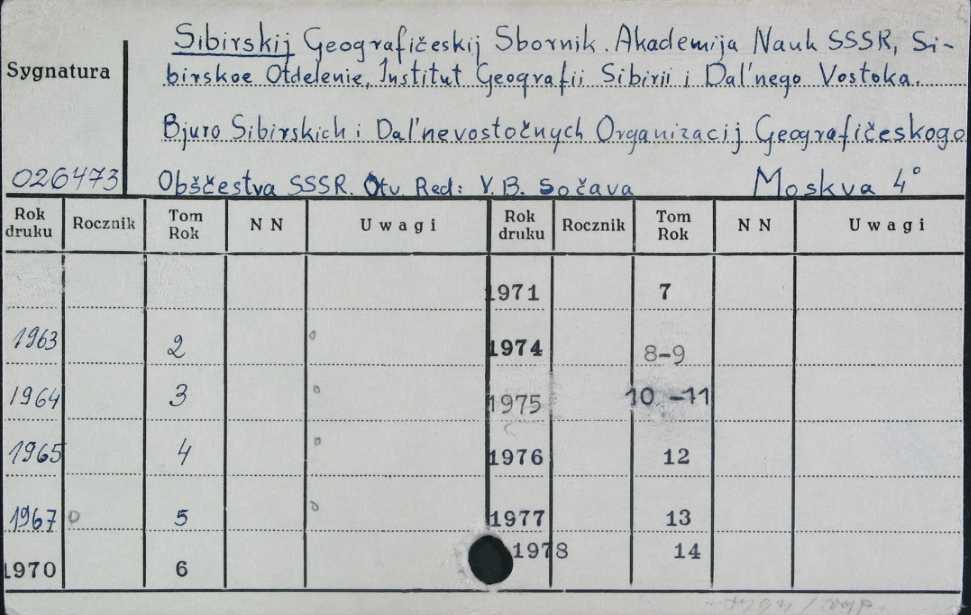 Sibirskij Geografičeskij Sbornik. Akademija Nauk SSSR, Si-
birskoe Otdelenie, Institut Geografii Sibirii i Dal'nego Vostoka.
Sygnatura
Bjuro Sibirskich i Dal'nevostočnych Organizacij Geografičeskogo
026473 Obščestva SSSR. Otv. Red: V. B. Sočava Moskva 4°
Rok druku Rocznik Tom Rok N N Uwagi Rok druku Rocznik Tom Rok N N Uwagi
1971 7
1963 2 1974 8-9
1964 3 1975 10 -11
1965 4 1976 12
1967 5 1977 13
1970 6 1978 14